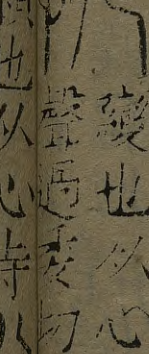 變也从心
聲過委切
也从心寺